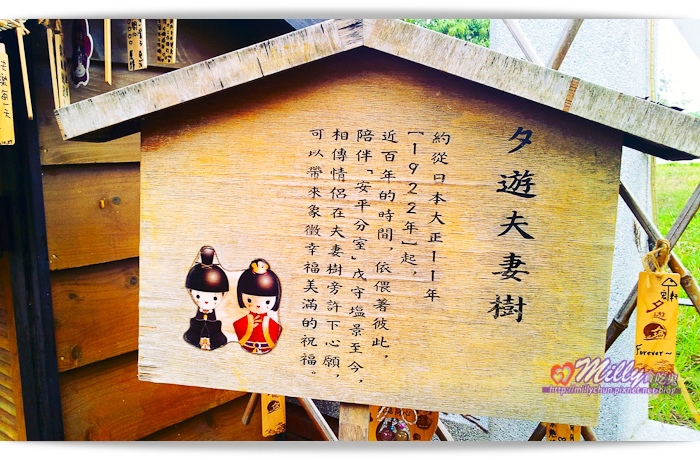 夕遊夫妻樹
約從日本大正11年
【1922年】起，
近百年的時間，依偎著彼此，
陪伴「安平分室」戍守塩景至今，
相傳情侶在夫妻樹旁許下心願，
可以帶來象徵幸福美滿的祝福。
夕遊
Forever~
Milly
http://millychun.pixnet.net/blog